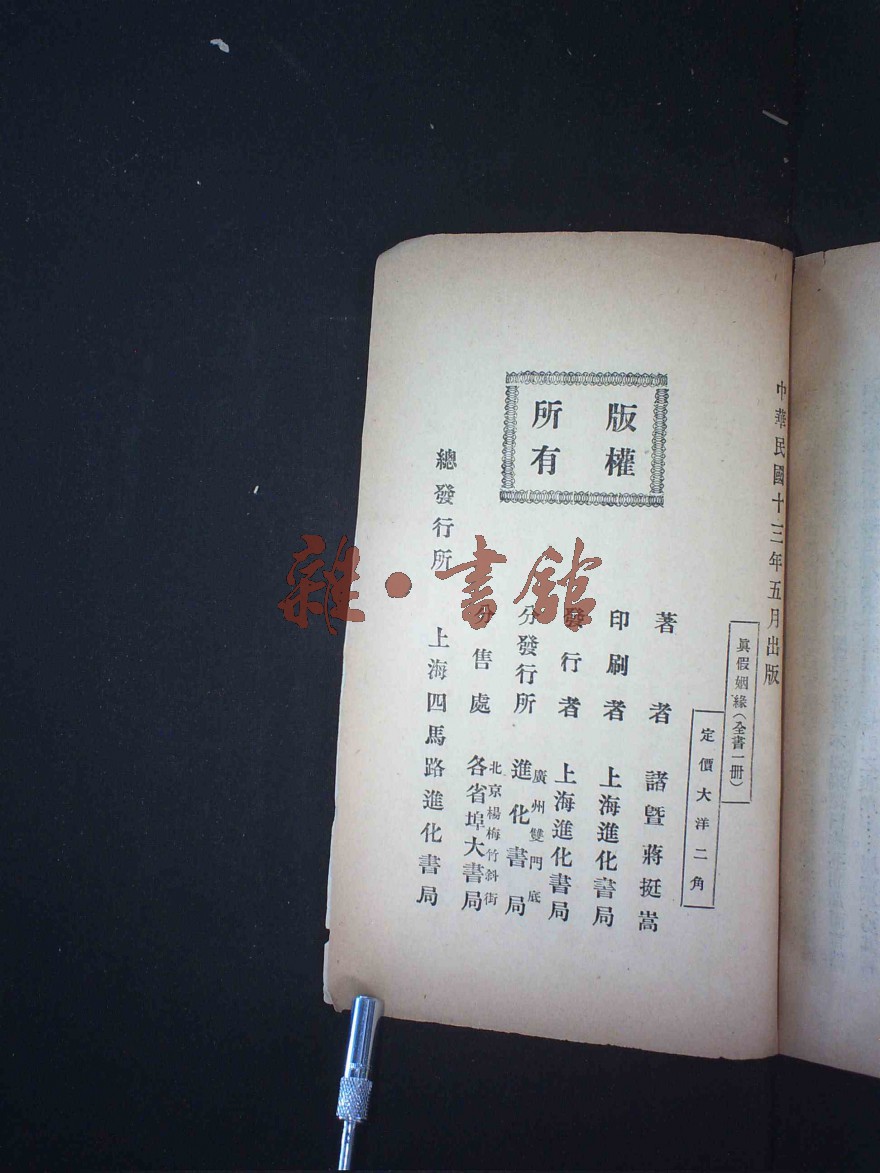 中華民國十三年五月出版
眞假姻緣(全書一册)
定價大洋二角
版權
所有
著者 諸曁蔣挺嵩
印刷者 上海進化書局
發行者 上海進化書局
分發行所 廣州雙門底 進化書局
北京楊梅竹斜街
分售處 各省埠大書局
總發行所 上海四馬路進化書局
雜·書館